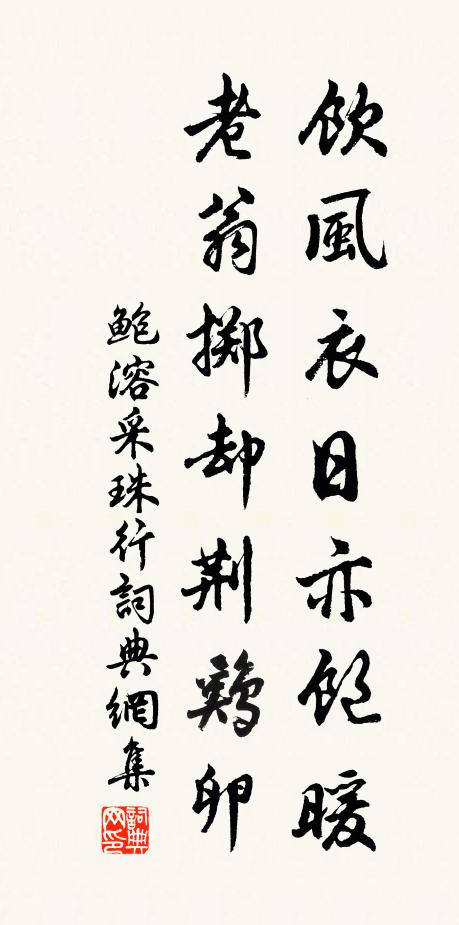 飲風衣日亦飽暖
老翁擲却荆鷄卵
鮑溶采珠行詞典網集
詞典网印